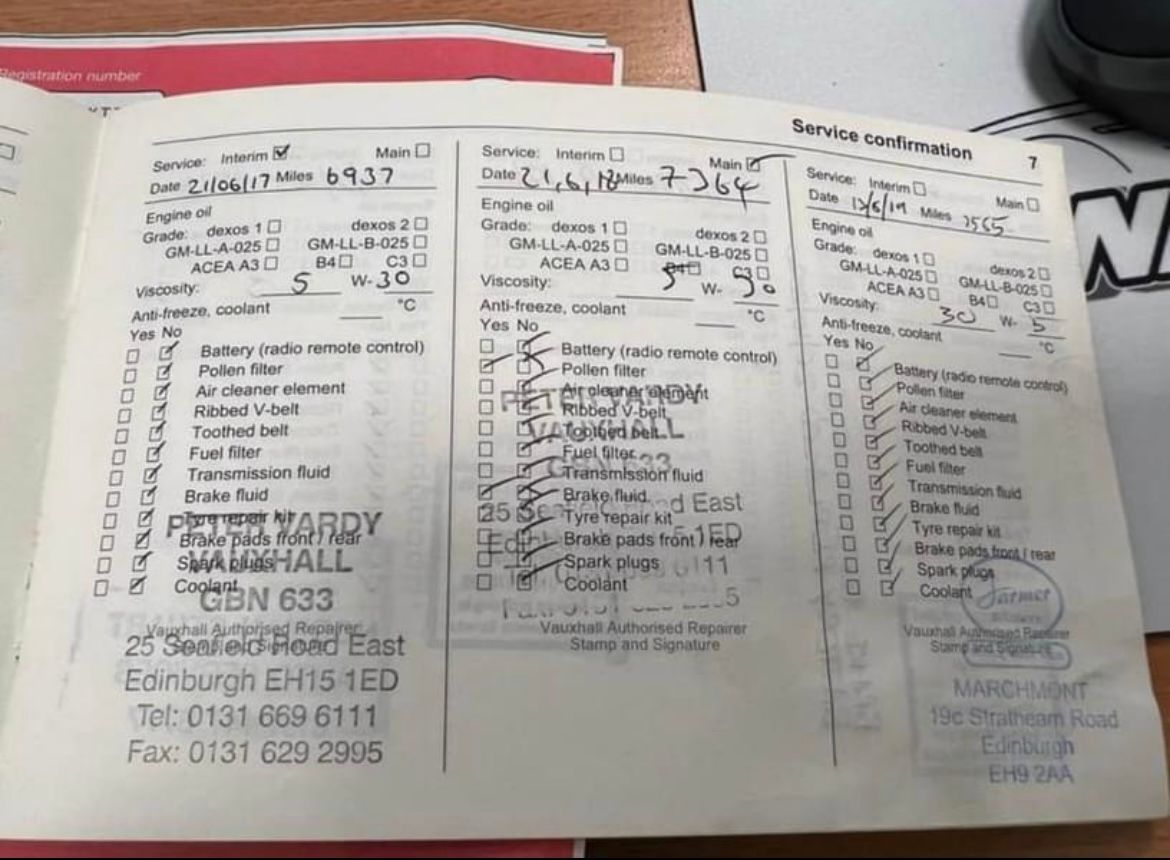 Registration number
Service confirmation 7
Service: Interim Main
Date 21/06/17 Miles 6937
Engine oil
Grade: dexos 1 dexos 2
GM-LL-A-025 GM-LL-B-025
ACEA A3 B4 C3
Viscosity: 5 W-30
Anti-freeze, coolant °C
Yes No
Battery (radio remote control)
Pollen filter
Air cleaner element
Ribbed V-belt
Toothed belt
Fuel filter
Transmission fluid
Brake fluid
Tyre repair kit
Brake pads front / rear
Spark plugs
Coolant
PETER VARDY
VAUXHALL
GBN 633
Vauxhall Authorised Repairer
25 Seafield Road East
Edinburgh EH15 1ED
Tel: 0131 669 6111
Fax: 0131 629 2995
Service: Interim Main
Date 21,6,18 Miles 7364
Engine oil
Grade: dexos 1 dexos 2
GM-LL-A-025 GM-LL-B-025
ACEA A3 B4 C3
Viscosity: 5 W- 30
Anti-freeze, coolant °C
Yes No
Battery (radio remote control)
Pollen filter
Air cleaner element
PETER VARDY
Ribbed V-belt
VAUXHALL
Toothed belt
Fuel filter
GBN 633
Transmission fluid
Brake fluid
25 Seafield Road East
Tyre repair kit
Brake pads front / rear
1ED
Spark plugs
6111
Coolant
Vauxhall Authorised Repairer
Stamp and Signature
Service: Interim Main
Date 12/6/19 Miles 7565
Engine oil
Grade: dexos 1 dexos 2
GM-LL-A-025 GM-LL-B-025
ACEA A3 B4 C3
Viscosity: 30 W- 5
Anti-freeze, coolant °C
Yes No
Battery (radio remote control)
Pollen filter
Air cleaner element
Ribbed V-belt
Toothed belt
Fuel filter
Transmission fluid
Brake fluid
Tyre repair kit
Brake pads front / rear
Spark plugs
Coolant
Vauxhall Authorised Repairer
Stamp and Signature
MARCHMONT
19c Strathearn Road
Edinburgh
EH9 2AA